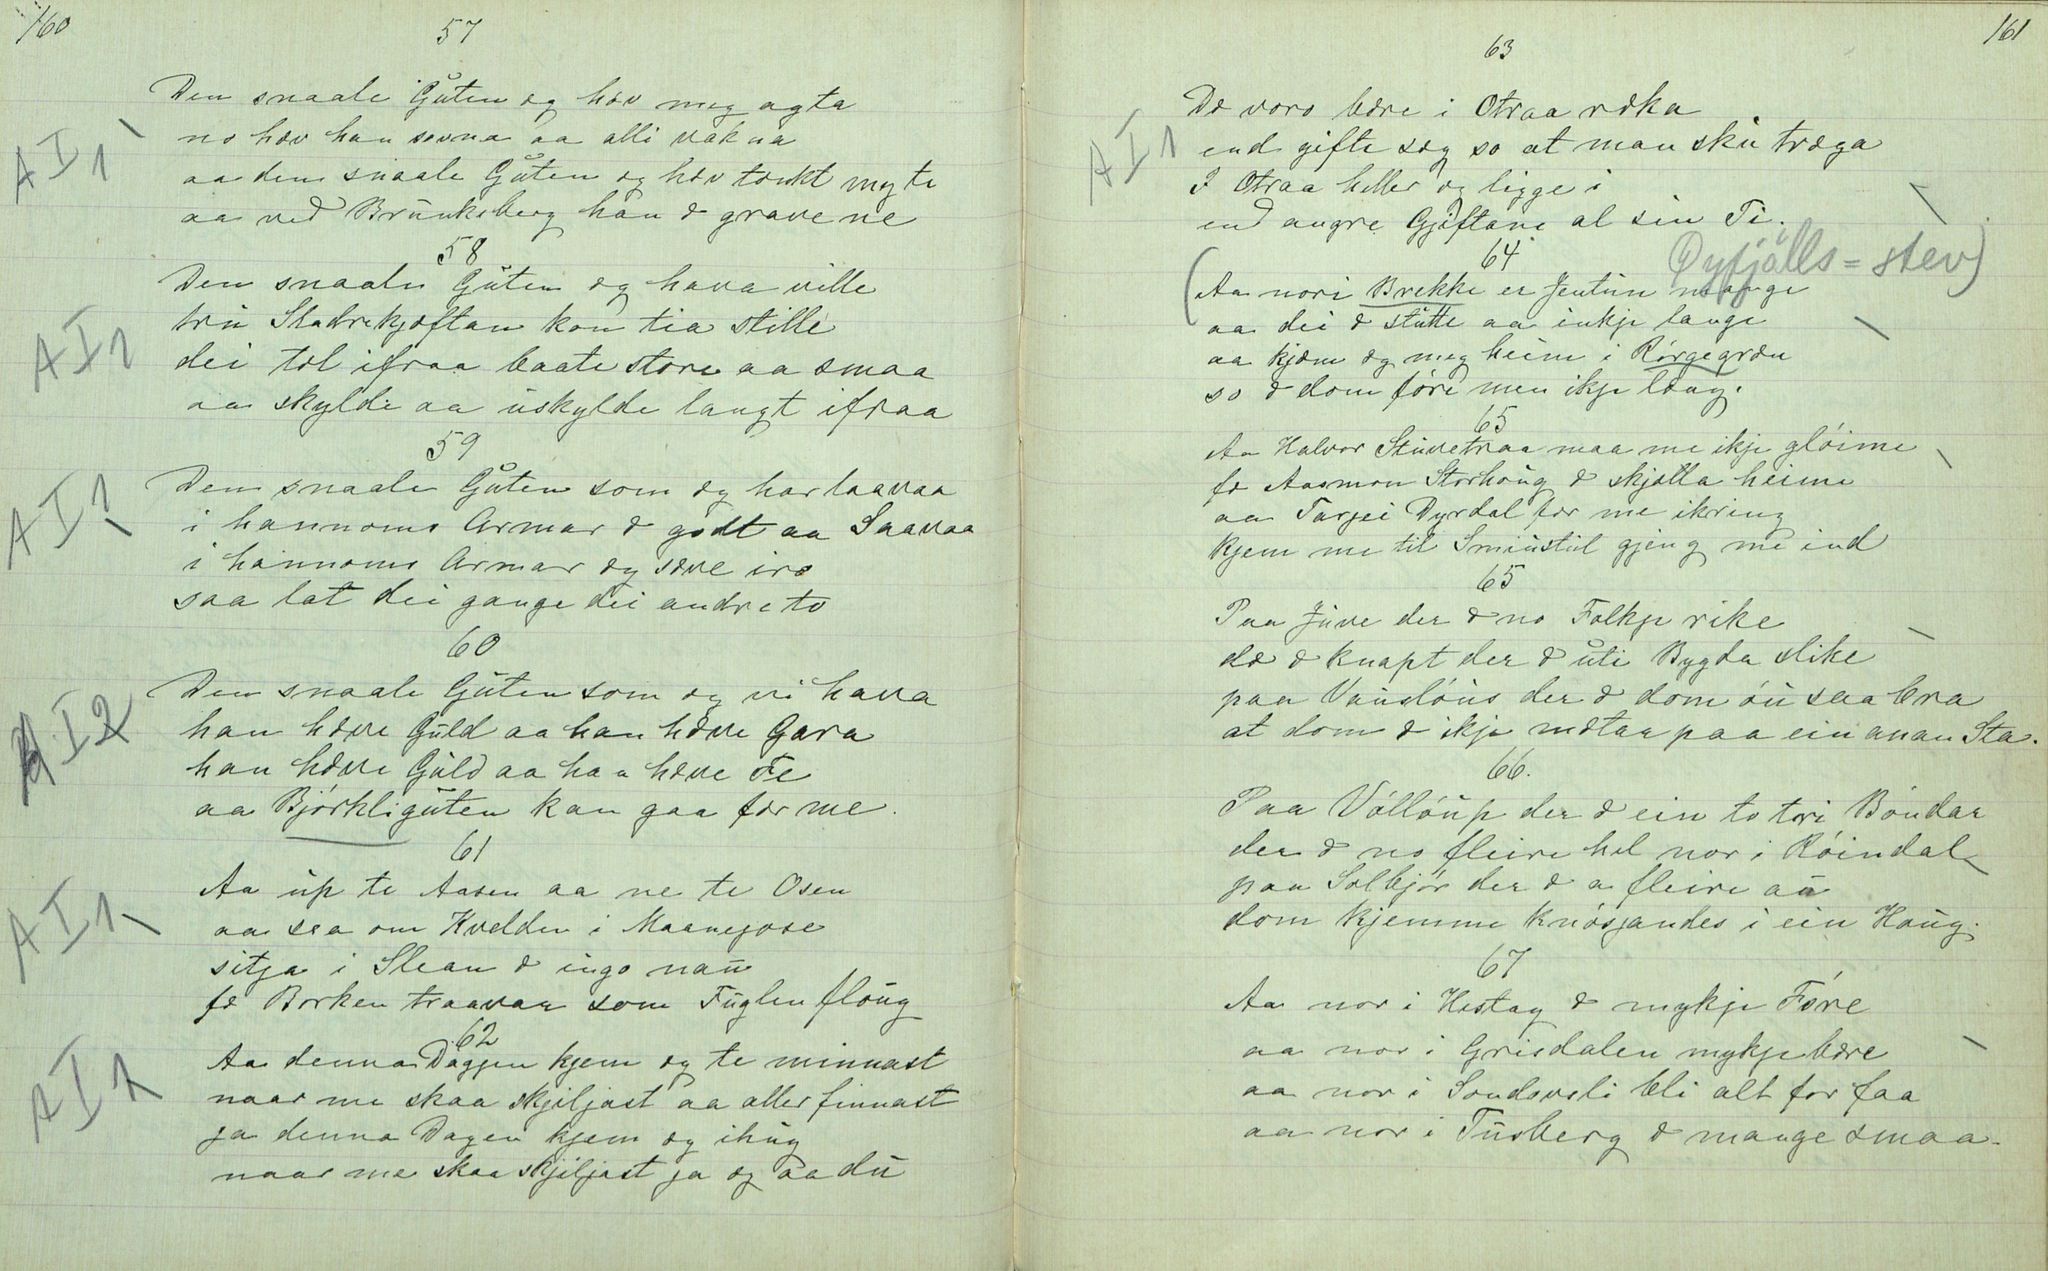 160
57
AI1
Den snaale Guten eg hæv meg agta
no hæv han sovna aa alli vakna
aa den snaale Guten eg hæv tænkt myte
aa ved Brunksberg han æ gravene
58
AI1
Den snaale Guten eg hava ville
tru Sladrekjæftan kon tia stille
dei tæl ifraa baate store aa smaa
aa skylde aa uskylde langt ifraa
59
AI1
Den snaale Guten som eg har laavaa
i hannoms Armar æ godt aa Saavaa
i hannoms Armar eg sæve iro
saa lat dei gange dei andre to
60
AI2
Den snaale Guten som eg vi hava
han hæve Guld aa han hæve Gara
han hæve Guld aa han hæve Fe
aa Bjórkliguten kan gaa før me.
61
AI1
Aa up te Aasen aa ne te Osen
aa saa om Kvelden i Maanejose
sitja i Slean æ ingo nau
fø Borken traavar som Fuglen floug
62
AI1
Aa denna Daggen kjem eg te minnast
naar me skaa skjiljast aa aller finnast
ja denna Dagen kjem eg ihug
naar me skaa skjiljast ja eg aa du
161
63
AI1
Dæ voro bære i Otraa ræka
end gifte sæg so at man sku træga
I Otraa heller eg ligge i
end angre Gjiftane al sin Ti.
64
Øyfjálls=stev)
(Aa nori Brekke er Jentun mange
aa dei æ stutte aa inkje lange
aa kjæm eg meg heim i Rórgegræn
so æ dom fóre men ikje læng.
65
Aa Halvor Stuvetraa maa me ikje glóime
fø Aasmon Storhoug æ skjælla heime
aa Tarjei Dyrdal før me ikring
kjem me til Smiustul gjeng me ind
65
Paa Juve der æ no Folkje rike
dæ æ knapt der æ uti Bygda slike
paa Vauslóus der æ dom óu saa bra
at dom æ ikje mætar paa ein anan Sta.
66.
Paa Vóllóup der æ ein to tri Bóndar
der æ no fleire hel nor i Róindal
paa Solbjór der æ a fleire au
dom kjemme knósjandes i ein Haug.
67
Aa nor i Hestøy æ mykje Fóre
aa nor i Grisdalen mykje bære
aa nor i Sondsvsli bli alt for faa
aa nor i Tusberg æ mange smaa.